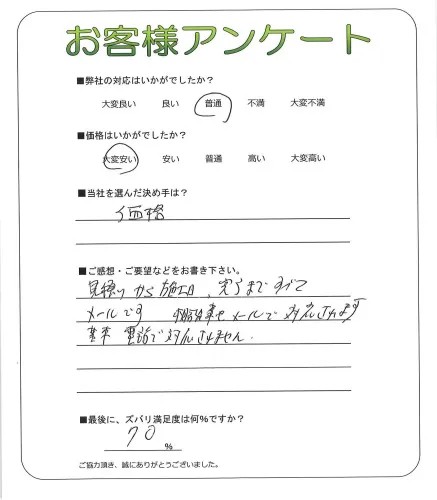 お客様アンケート
■弊社の対応はいかがでしたか？
大変良い 良い 普通 不満 大変不満
■価格はいかがでしたか？
大変安い 安い 普通 高い 大変高い
■当社を選んだ決め手は？
価格
■ご感想・ご要望などをお書き下さい。
見積りから施工日、完了まですべて
メールです メールで対応されます
基本電話で対応されません.
■最後に、ズバリ満足度は何％ですか？
70
％
ご協力頂き、誠にありがとうございました。